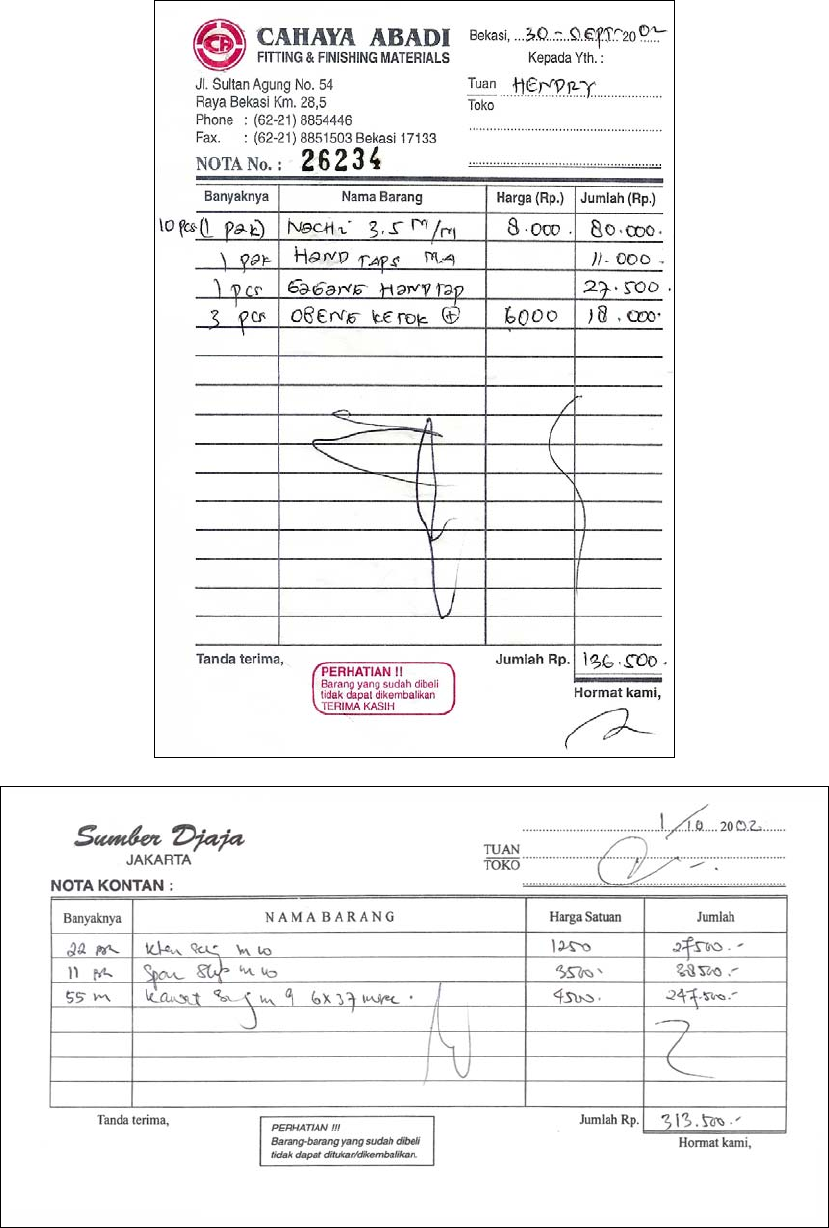 CAHAYA ABADI
FITTING & FINISHING MATERIALS
Jl. Sultan Agung No. 54
Raya Bekasi Km. 28,5
Phone : (62-21) 8854446
Fax. : (62-21) 8851503 Bekasi 17133
NOTA No. : 26234
Bekasi, 30 - SEPT 2002
Kepada Yth. :
Tuan HENDRY
Toko
Banyaknya Nama Barang Harga (Rp.) Jumlah (Rp.)
10 pcs (1 pak) NACHi 3.5 M/M 8.000. 80.000.
1 pak HAND TAPS M.4 11.000.
1 pcs GAGANG HANDTAP 27.500.
3 pcs OBENG KETOK + 6000 18.000.
Tanda terima, Jumlah Rp. 136.500.
PERHATIAN !!
Barang yang sudah dibeli
tidak dapat dikembalikan
TERIMA KASIH
Hormat kami,
Sumber Djaja
JAKARTA
NOTA KONTAN :
1/10 2002
TUAN
TOKO
Banyaknya NAMA BARANG Harga Satuan Jumlah
22 m 10 1250 27500.-
11 Span m 10 3500. 38500.-
55 m Kawat m 9 6x37 4500. 247.500.-
Tanda terima, Jumlah Rp. 313.500.-
PERHATIAN !!!
Barang-barang yang sudah dibeli
tidak dapat ditukar/dikembalikan.
Hormat kami,